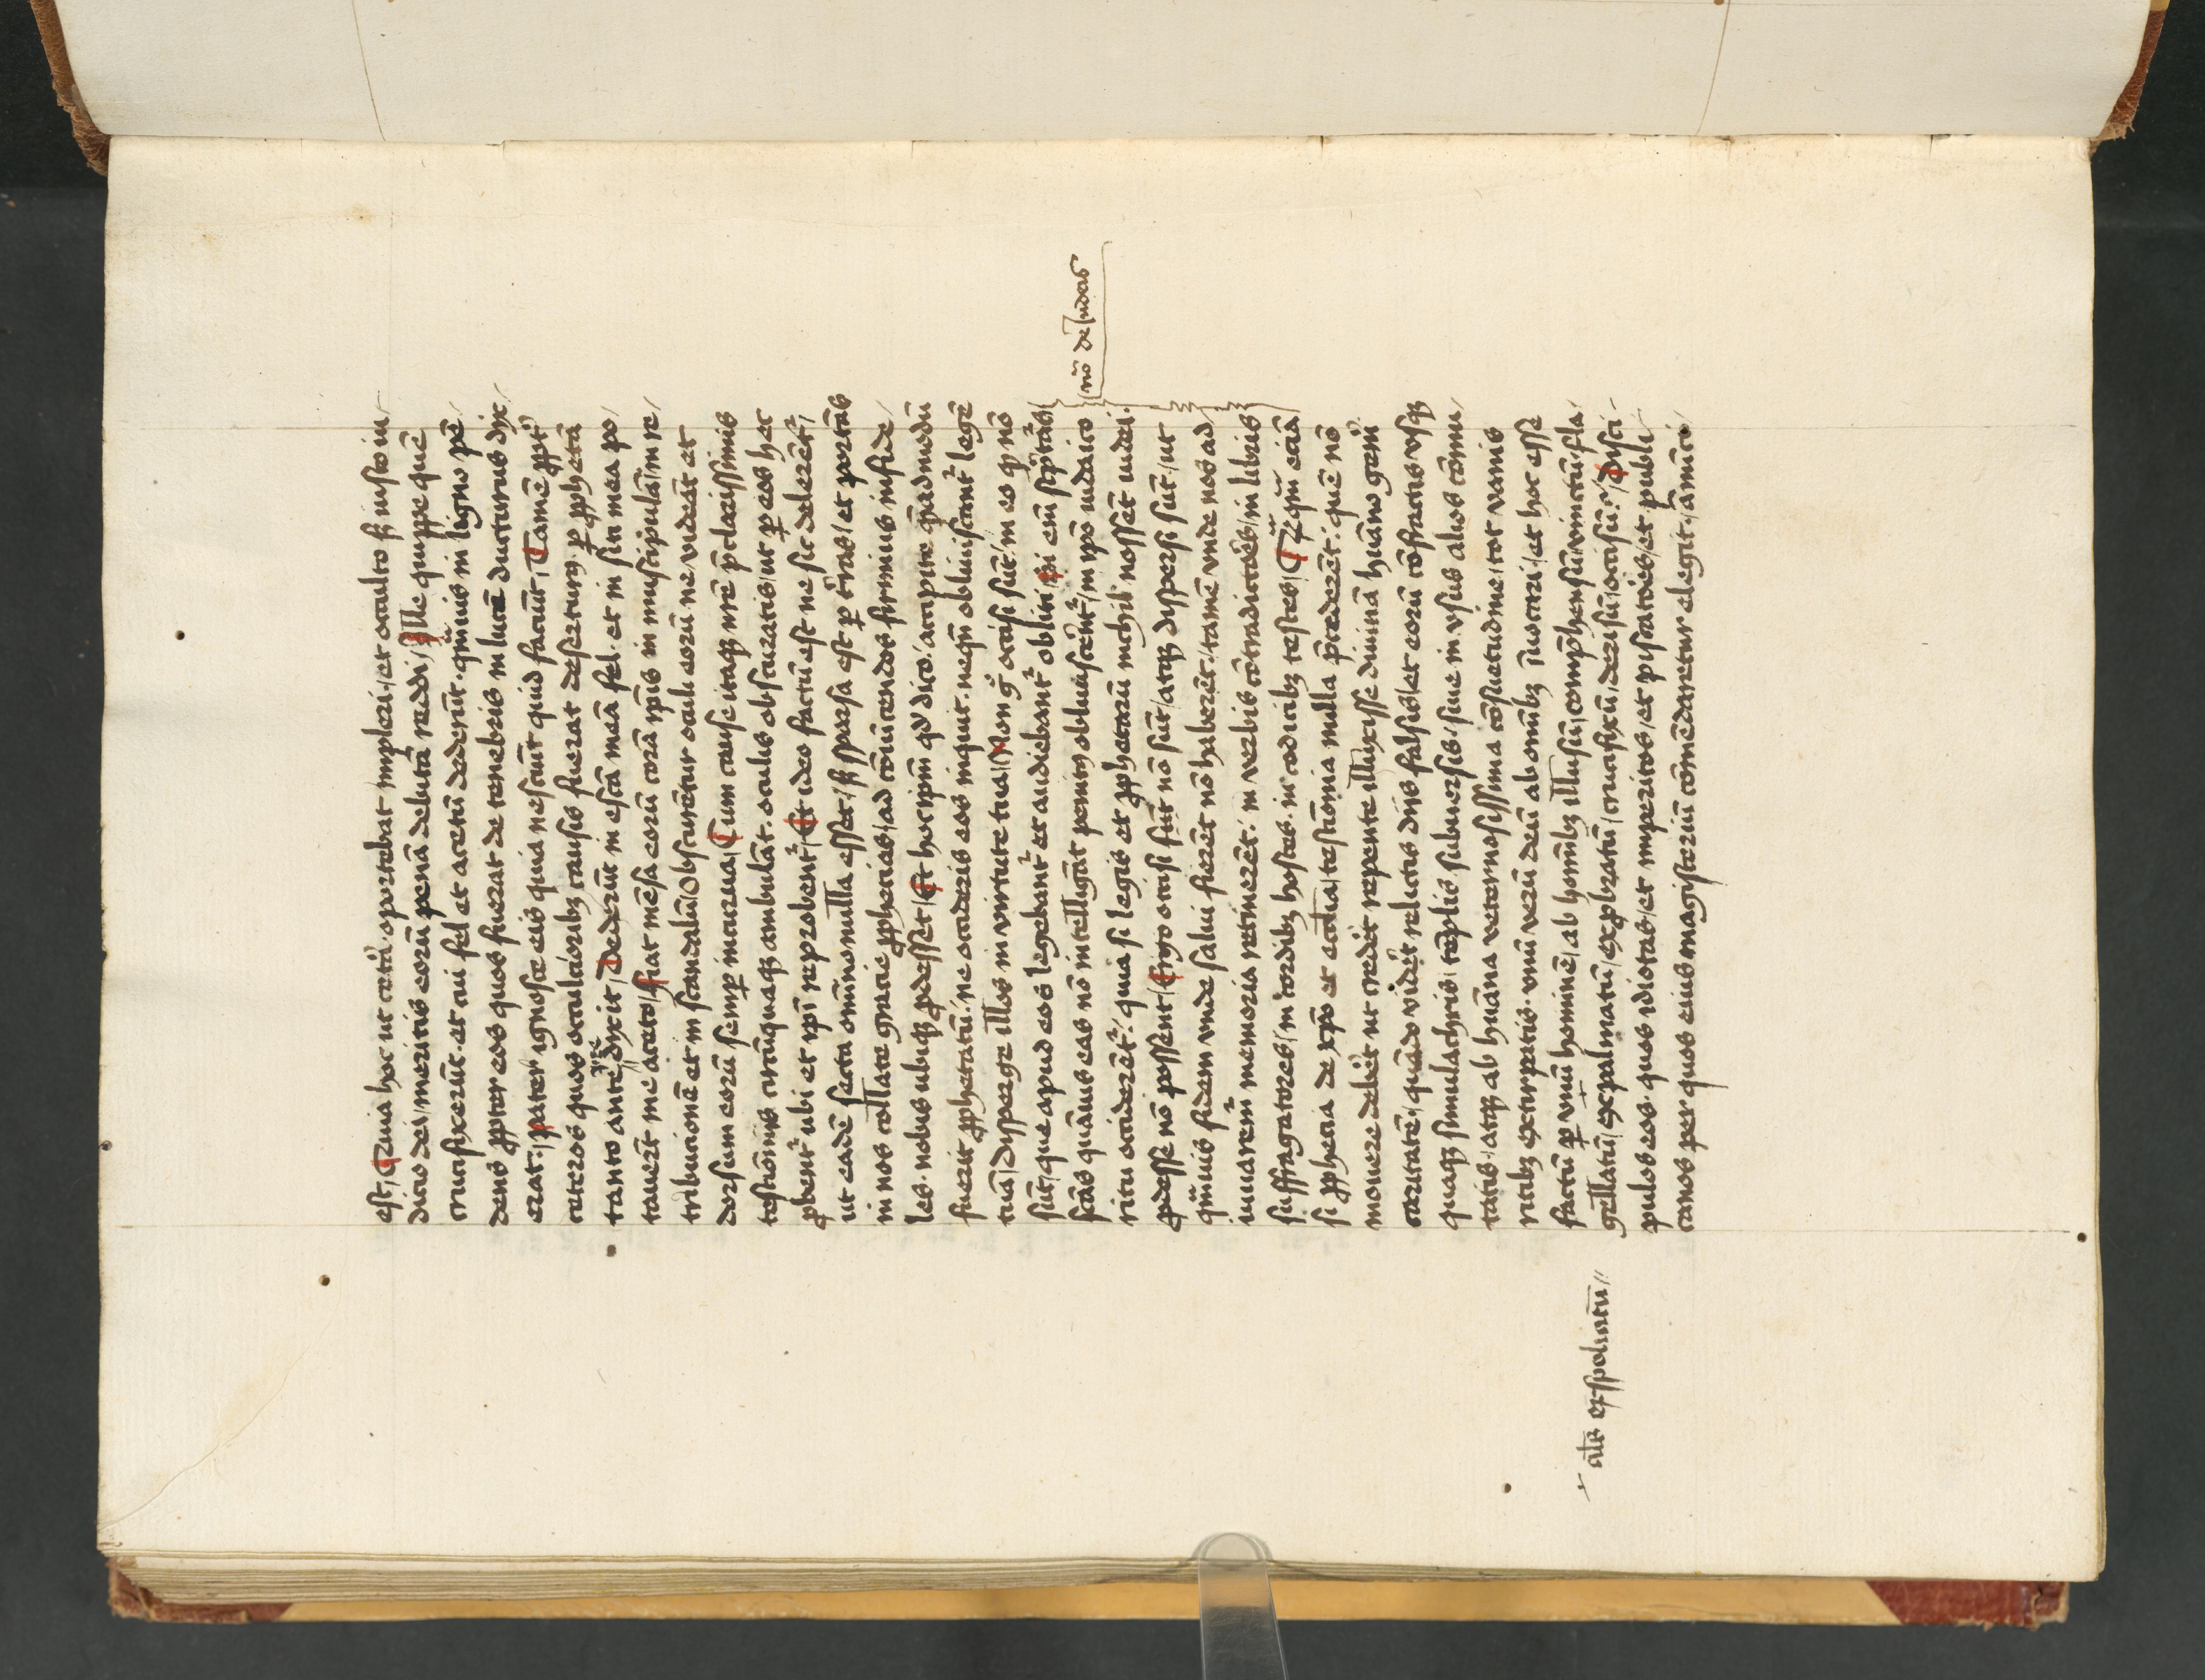 est / Quia hoc ut cet̓a oportebat impleri / et occulto sꝫ iusto iu/
dicio dei / meritis eorū penā debitā reddi / Ille quippe quē
crucifixerūt et cui fel et acetū dederūt · qm̄uis in ligno pē/
dens ꝓpter eos quos fuerat de tenebris in lucē ducturus dix/
erat · / pater ignosce eis quia nesciūt quid faciūt / Tamē ꝓpt̓
ceteros quos occultioribꝫ causis fuerat deserturꝰ ꝑ ꝓphetā
tanto ante pre dixit / Dederūt in escā meā fel · et in siti mea po/
tauerūt me aceto / fiat mēsa eorū corā ip̄is in muscipulā / in re/
tribucionē et in scandalū / Obscurētur oculi eorū ne videāt et
dorsum eorū semꝑ incurua / Cum cause itaqꝫ nr̄e p̄clarissimis
testiōniis circūquaqꝫ ambulāt · oculis obscuratis / ut ꝑ eos hec
ꝓbent᷑ ubi et ip̄i reprobent᷑ / Et ideo factū est ne sic delerēt᷑ /
ut eadē secta omīno nulla esset / sꝫ sparsa est ꝑ t̓ras / et portās
in nos collate gracie ꝓphecias / ad cōuīcendos firmius infide/
les · nobis ubiqꝫ ꝓdesset / Et hoc ip̄m qd̓ dico / accipite q̄admodū
fuerit ꝓphetatū · ne occideris eos inquit · neqn̄ obliuiscant᷑ legē
tuā / disperge illos in virtute tua / Non g̊ occisi sūt / in eo q̓ nō
sūt / que apud eos legebant᷑ et audiebant᷑ obliti / Si em̄ sc̓pt̄as
sc̄as quāuis eas nō intelligāt penitꝰ obliuiscerēt᷑ / in ip̄o iudaico
ritu occiderēt᷑ / quia si legis et ꝓphetarū nichil nossēt iudei ·
ꝓdesse nō possent / Ergo occisi sūt nō sūt / atqꝫ dispersi sūt · / ut
qm̄uis fidem vnde salui fierēt nō haberēt / tamē vnde nos ad
iuuarem᷑ memoria retinerēt / in verbis cōtradictores / in libris
suffragatores / in cordibꝫ hostes · in codicibꝫ testes / Cꝫ qm̄ eciā
si ꝓphecia de xp̄o et ecclesia / testiōnia nulla p̄cederēt · quē nō
mouere deb̓et ut cred̓et repente illuxisse diuinā hūano gen̓i
caritatē / quādo vid̓et relictis diis falsis / et eorū cōfractis vsqꝫ
quaqꝫ simulachris / tēplis subuersis / siue in vsus alios cōmu/
tatis / atqꝫ ab hūana veternosissima cōsuetudine / tot vanis
ritibꝫ extirpatis · vnū verū deū ab omībꝫ iuocari / et hoc esse
factū ꝑ vnū hominē / ab homībꝫ illusū / compr̄hensū / vinctū / fla/
gellatū / expalmatū / exꝓbratū / crucifixū / derisū / occisū / Disci/
pulos eos · quos idiotas / et imperitos / et piscatōes / et publi/
canos per quos eius magisterīū cōmēdaretur elegit · / ānūcīā
nō de Iudeis
al̄s exspoliatū //